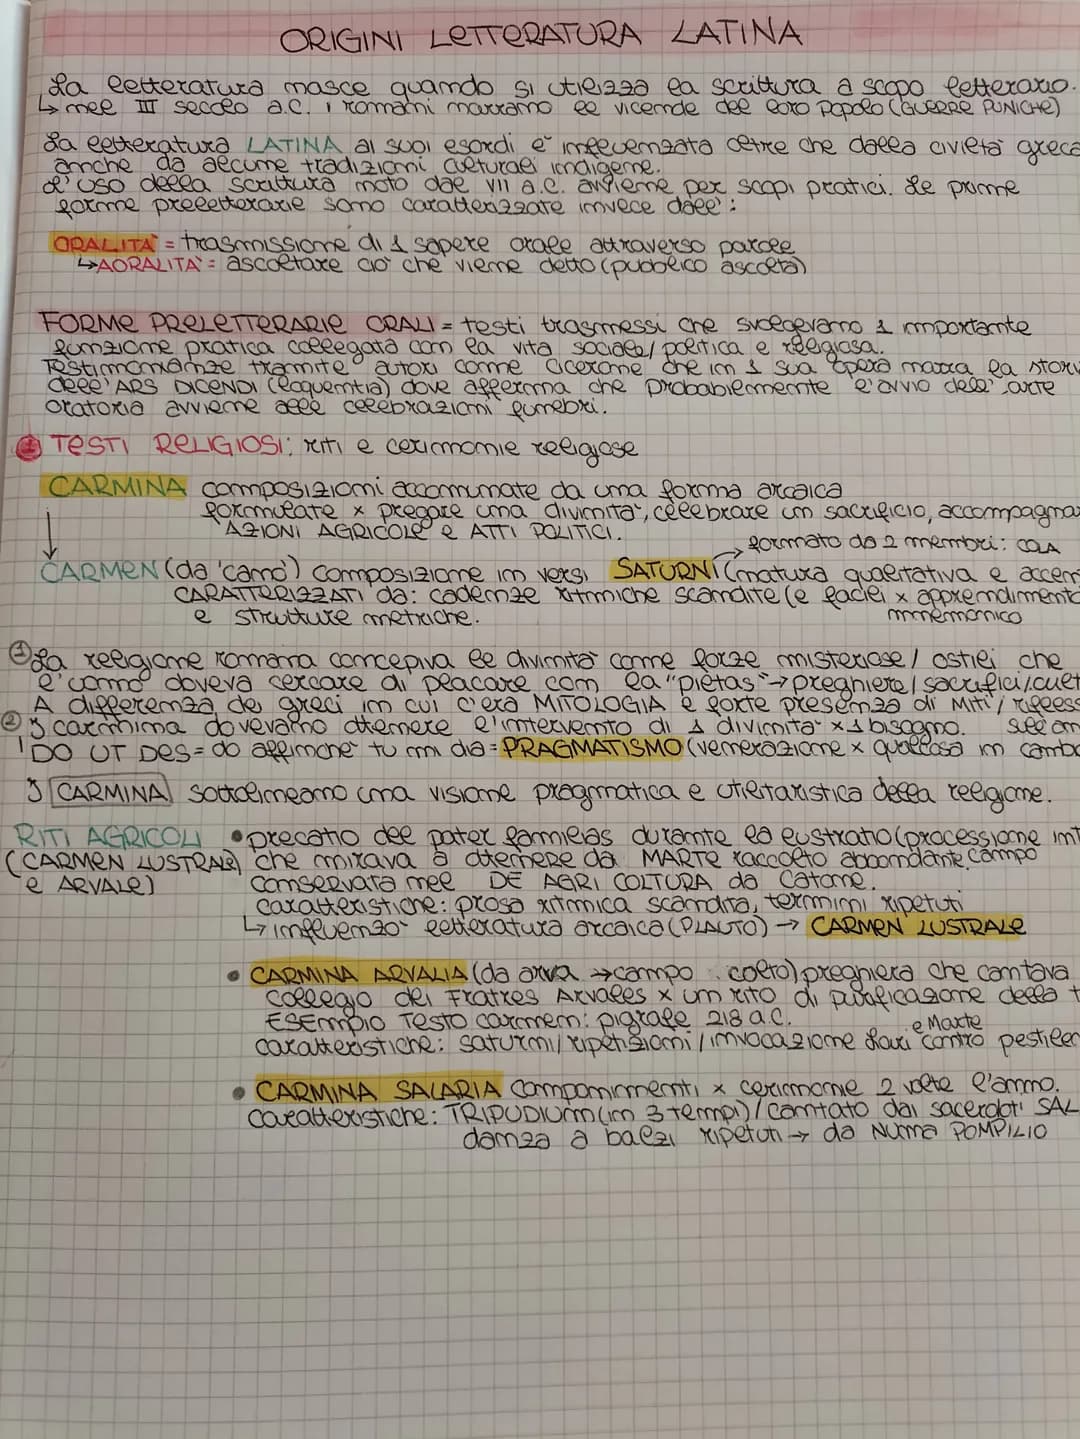 ORIGINI LETTERATURA LATINA
La letteratura nasce quando si utilizza la scrittura a scopo letterario.
↳ nel III secolo a.C. i romani narrano le vicende del loro popolo (GUERRE PUNICHE)
La letteratura LATINA ai suoi esordi è influenzata oltre che dalla civiltà greca
anche da alcune tradizioni culturali indigene.
L'uso della scrittura noto dal VII a.C. avviene per scopi pratici. Le prime
forme preletterarie sono caratterizzate invece dall':
ORALITA' = trasmissione di 1 sapere orale attraverso parole
↳AORALITA' = ascoltare ciò che viene detto (pubblico ascolta)
FORME PRELETTERARIE ORALI = testi trasmessi che svolgevano 1 importante
funzione pratica collegata con la vita sociale/politica e religiosa.
Testimonianze tramite autori come Cicerone che in 1 sua opera narra la stori
dell'ARS DICENDI (loquentia) dove afferma che probabilmente l'avvio dell'arte
oratoria avviene alle celebrazioni funebri.
1 TESTI RELIGIOSI: riti e cerimonie religiose
CARMINA composizioni accomunate da una forma arcaica
formulate x pregare una divinità, celebrare un sacrificio, accompagna
AZIONI AGRICOLE e ATTI POLITICI.
→ formato da 2 membri: COLA
CARMEN (da 'cano') composizione in versi SATURNI (natura qualitativa e accen
CARATTERIZZATI da: cadenze ritmiche scandite (e facili x apprendimento
e strutture metriche. mnemonico
① La religione romana concepiva le divinità come forze misteriose/ostili che
l'uomo doveva cercare di placare con la "pietas" → preghiere/sacrifici/cult
A differenza dei greci in cui c'era MITOLOGIA e forte presenza di Miti/rifless
② I carmina dovevano ottenere l'intervento di 1 divinità x 1 bisogno.
DO UT DES = do affinché tu mi dia = PRAGMATISMO (venerazione x qualcosa in camb
I CARMINA sottolineano una visione pragmatica e utilitaristica della religione.
RITI AGRICOLI • precatio del pater familias durante la lustratio (processione int
(CARMEN LUSTRALE che mirava a ottenere da MARTE raccolto abbondante. campo
e ARVALE) conservata nel DE AGRI COLTURA da Catone.
caratteristiche: prosa ritmica scandita, termini ripetuti
↳ influenzò letteratura arcaica (PLAUTO) → CARMEN LUSTRALE
• CARMINA ARVALIA (da arva → campo colto) preghiera che cantava
collegio dei Fratres Arvales x un rito di purificazione della t
ESEmpio Testo carmen: pigrafe 218 a.C.
e Marte
caratteristiche: saturni/ripetizioni/invocazione Lari contro pestilen
• CARMINA SALARIA componimenti x cerimonie 2 volte l'anno.
caratteristiche: TRIPUDIUm (in 3 tempi)/cantato dai sacerdoti SAL
danza a balzi ripetuti → da NUMA POMPILIO